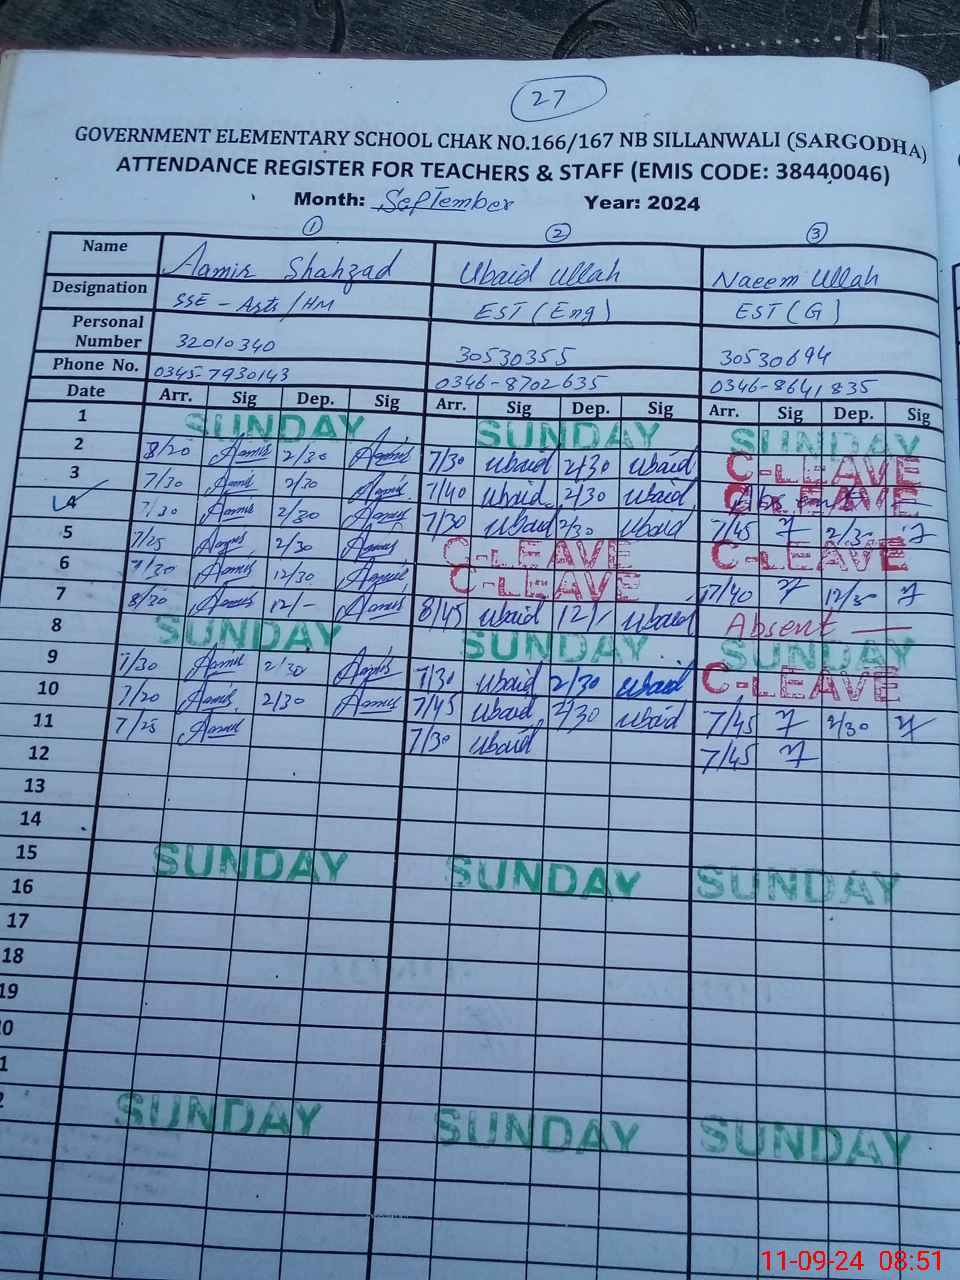 27
GOVERNMENT ELEMENTARY SCHOOL CHAK NO.166/167 NB SILLANWALI (SARGODHA)
ATTENDANCE REGISTER FOR TEACHERS & STAFF (EMIS CODE: 38440046)
Month: September Year: 2024
1 2 3
Name Aamir Shahzad Ubaid Ullah Naeem Ullah
Designation SSE - Arts/HM EST (Eng) EST (G)
Personal Number 32010340 30530355 30530694
Phone No. 0345-7930143 0346-8702635 0346-8641835
Date Arr. Sig Dep. Sig Arr. Sig Dep. Sig Arr. Sig Dep. Sig
1 SUNDAY SUNDAY SUNDAY
2 8/20 Aamir 2/30 Aamir 7/30 Ubaid 2/30 Ubaid C-LEAVE
3 7/30 Aamir 2/30 Aamir 7/40 Ubaid 2/30 Ubaid C-LEAVE
4 7/30 Aamir 2/30 Aamir 7/30 Ubaid 2/30 Ubaid 7/45 2/30
5 7/25 Aamir 2/30 Aamir C-LEAVE C-LEAVE
6 7/30 Aamir 12/30 Aamir C-LEAVE 7/40 12/30
7 8/30 Aamir 12/- Aamir 8/45 Ubaid 12/- Ubaid Absent
8 SUNDAY SUNDAY SUNDAY
9 7/30 Aamir 2/30 Aamir 7/30 Ubaid 2/30 Ubaid C-LEAVE
10 7/20 Aamir 2/30 Aamir 7/45 Ubaid 2/30 Ubaid 7/45 2/30
11 7/25 Aamir 7/30 Ubaid 7/45
12
13
14
15 SUNDAY SUNDAY SUNDAY
16
17
18
19
0
1
2 SUNDAY SUNDAY SUNDAY
11-09-24 08:51